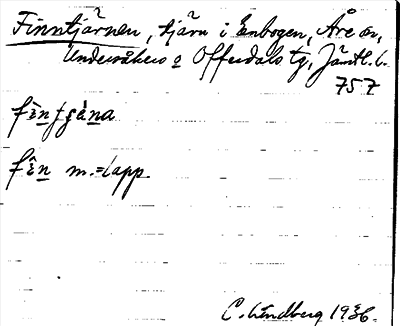 Finntjärnen, tjärn i Enbogen, Åre sn,
Undersåkers o Offerdals tg, Jämtl. l.
757
fìntgàna
fìn m. = lapp
C. Lindberg 1936.